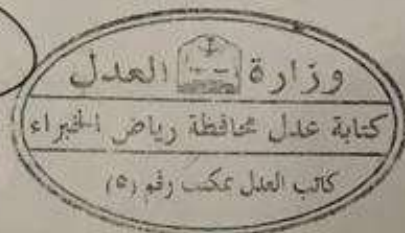 وزارة العدل
كتابة عدل محافظة رياض الخبراء
كاتب العدل بمكتب رقم (٥)